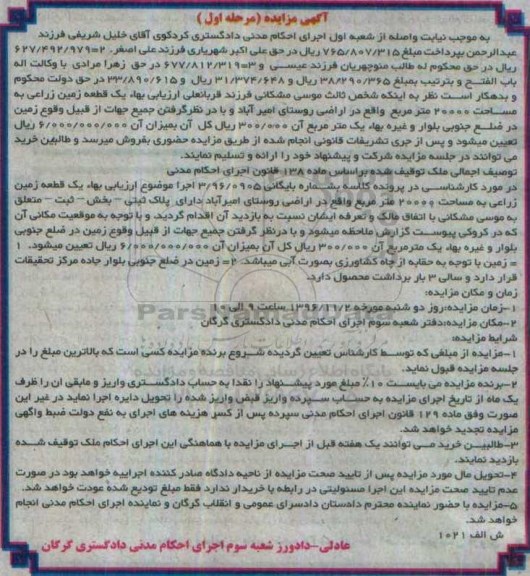 آگهی مزایده (مرحله اول )
به موجب نیابت واصله از شعبه اول اجرای احکام مدنی دادگستری کردکوی آقای خلیل شریفی فرزند
عبدالرحمن بپرداخت مبلغ ۷۶۵/۸۰۷/۳۱۵ ریال در حق علی اکبر شهریاری فرزند علی اصغر. ۲=۶۲۷/۴۹۲/۹۷۹
ریال در حق محکوم له طالب منوچهریان فرزند عیسی و ۳=۶۷۷/۸۱۲/۳۱۹ در حق زهرا مرادی با وکالت اله
باب الفتح و بترتیب بمبلغ ۳۸/۲۹۰/۳۶۵ ریال و ۳۱/۳۷۴/۶۴۸ ریال و ۳۳/۸۹۰/۶۱۵ در حق دولت محکوم
و بدهکار است نظر به اینکه شخص ثالث موسی مشکانی فرزند قربانعلی ارزیابی بهاء یک قطعه زمین زراعی به
مساحت ۲۰۰۰۰ متر مربع واقع در اراضی روستای امیر آباد و با در نظرگرفتن جمیع جهات از قبیل وقوع زمین
در ضلع جنوبی بلوار و غیره بهاء یک متر مربع آن ۳۰۰/۰۰۰ ریال کل آن بمیزان آن ۶/۰۰۰/۰۰۰/۰۰۰ ریال
تعیین میشود و پس از جری تشریفات قانونی انجام شده از طریق مزایده حضوری بفروش میرسد و طالبین خرید
می توانند در جلسه مزایده شرکت و پیشنهاد خود را ارائه و تسلیم نمایند.
توصیف اجمالی ملک توقیف شده براساس ماده ۱۳۸ قانون اجرای احکام مدنی
در مورد کارشناسی در پرونده کلاسه بشماره بایگانی ۳/۹۶/۰۹۰۵ اجرا موضوع ارزیابی بهاء یک قطعه زمین
زراعی به مساحت ۲۰۰۰۰ متر مربع واقع در اراضی روستای امیرآباد دارای پلاک ثبتی – بخش – ثبت – متعلق
به موسی مشکانی با اتفاق مالک و تعرفه ایشان نسبت به بازدید آن اقدام گردید. و با توجه به موقعیت مکانی آن
که در کروکی پیوست گزارش ملاحظه میشود و با درنظر گرفتن جمیع جهات از قبیل وقوع زمین در ضلع جنوبی
بلوار و غیره بهاء یک مترمربع آن ۳۰۰/۰۰۰ ریال کل آن بمیزان آن ۶/۰۰۰/۰۰۰/۰۰۰ ریال تعیین میشود. ۱
= زمین با توجه به حقابه از چاه کشاورزی بصورت آبی میباشد. ۲= زمین در ضلع جنوبی بلوار جاده مرکز تحقیقات
قرار دارد و سالی ۳ بار برداشت محصول دارد.
زمان و مکان مزایده:
۱-زمان مزایده:روز دو شنبه مورخه ۱۳۹۶/۱۱/۲ ساعت ۹ الی
۲-مکان مزایده:دفتر شعبه سوم اجرای احکام مدنی دادگستری گرگان
شرایط مزایده:
۱-مزایده از مبلغی که توسط کارشناس تعیین گردیده شروع برنده مزایده کسی است که بالاترین مبلغ را در
جلسه مزایده قبول نماید.
۲-برنده مزایده می بایست ۱۰٪ مبلغ مورد پیشنهاد را نقدا به حساب دادگستری واریز و مابقی ان را ظرف
یک ماه از تاریخ اجرای مزایده به حساب سپرده واریز قبض واریز شده را تحویل دایره اجرا نماید در غیر این
صورت وفق ماده ۱۲۹ قانون اجرای احکام مدنی سپرده پس از کسر هزینه های اجرای به نفع دولت ضبط واگهی
مزایده تجدید خواهد شد.
۳-طالبین خرید می توانند یک هفته قبل از اجرای مزایده با هماهنگی این اجرای احکام ملک توقیف شده
بازدید نمایند.
۴-تحویل مال مورد مزایده پس از تایید صحت مزایده از ناحیه دادگاه صادر کننده اجراییه خواهد بود در صورت
عدم تایید صحت مزایده این اجرا مسئولیتی در رابطه با خریدار ندارد فقط مبلغ تودیع شده عودت خواهد شد.
۵-مزایده با حضور نماینده محترم دادستان دادسرای عمومی و انقلاب گرگان و نماینده اجرای احکام مدنی انجام
خواهد شد.
ش الف ۱۰۲۱
عادلی-دادورز شعبه سوم اجرای احکام مدنی دادگستری گرگان